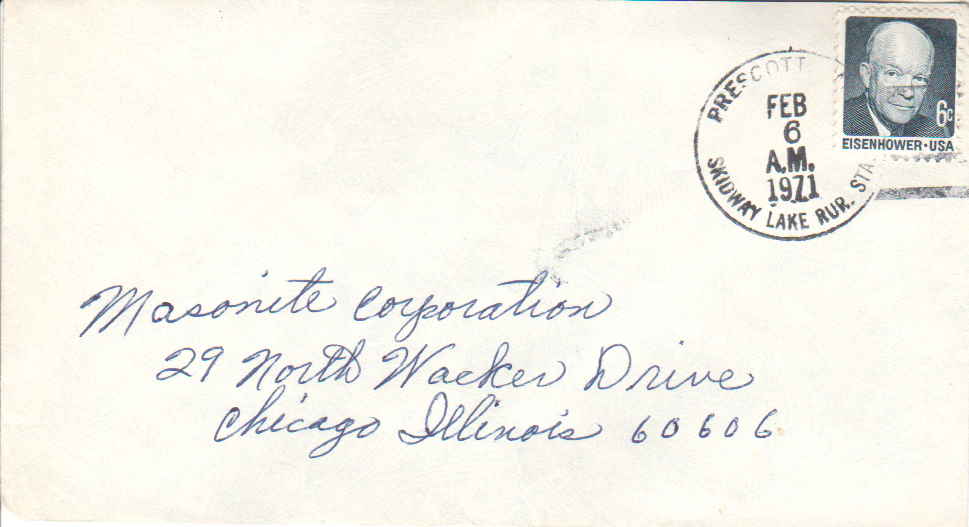 PRESCOTT
FEB
6
A.M.
1971
SKIDWAY LAKE RUR. STA
6c
EISENHOWER·USA
Masonite Corporation
29 North Wacker Drive
Chicago Illinois 60606